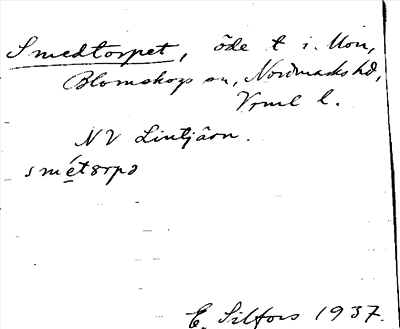 Smedtorpet, öde t i. Mon,
Blomskogs sn, Nordmarks hd,
Vrml l.
NV Lintjärn.
smétorpə
E. Silfors 1937.